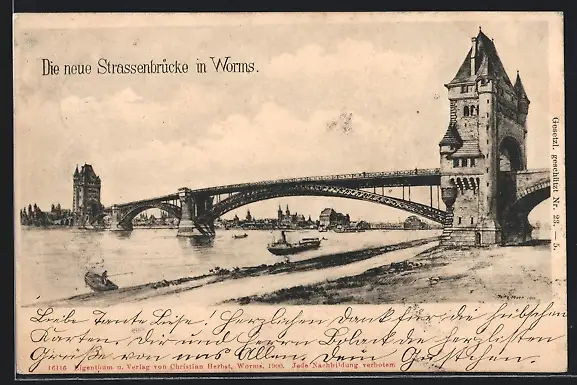 Die neue Strassenbrücke in Worms.
Gesetzl. geschützt Nr. 23. — 5.
Liebe Tante Lise! Herzlichen Dank für die hübschen
Karten, Dir und Herrn die herzlichsten
Grüße von uns Allen, Dein Gretchen.
16116 Eigenthum u. Verlag von Christian Herbst, Worms, 1900. Jede Nachbildung verboten.